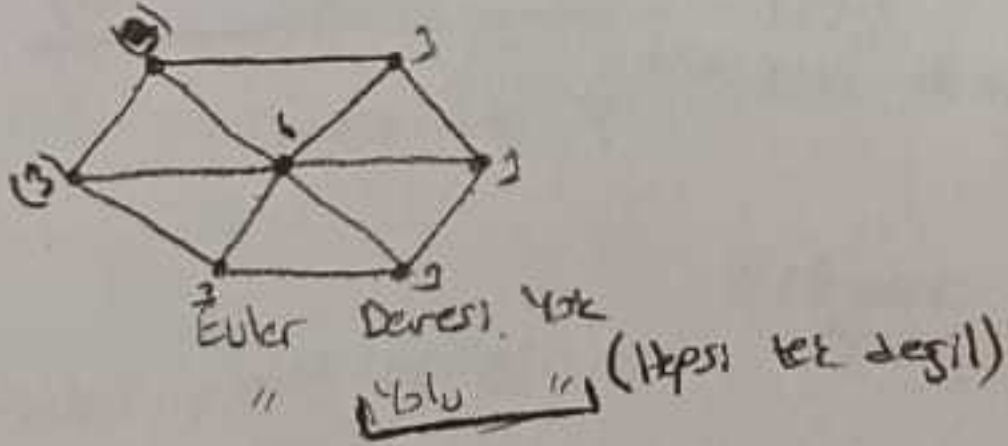 3
3
6
(3)
3
3
3
Euler Devresi. Yok
" Yolu " (Hepsi tek degil)